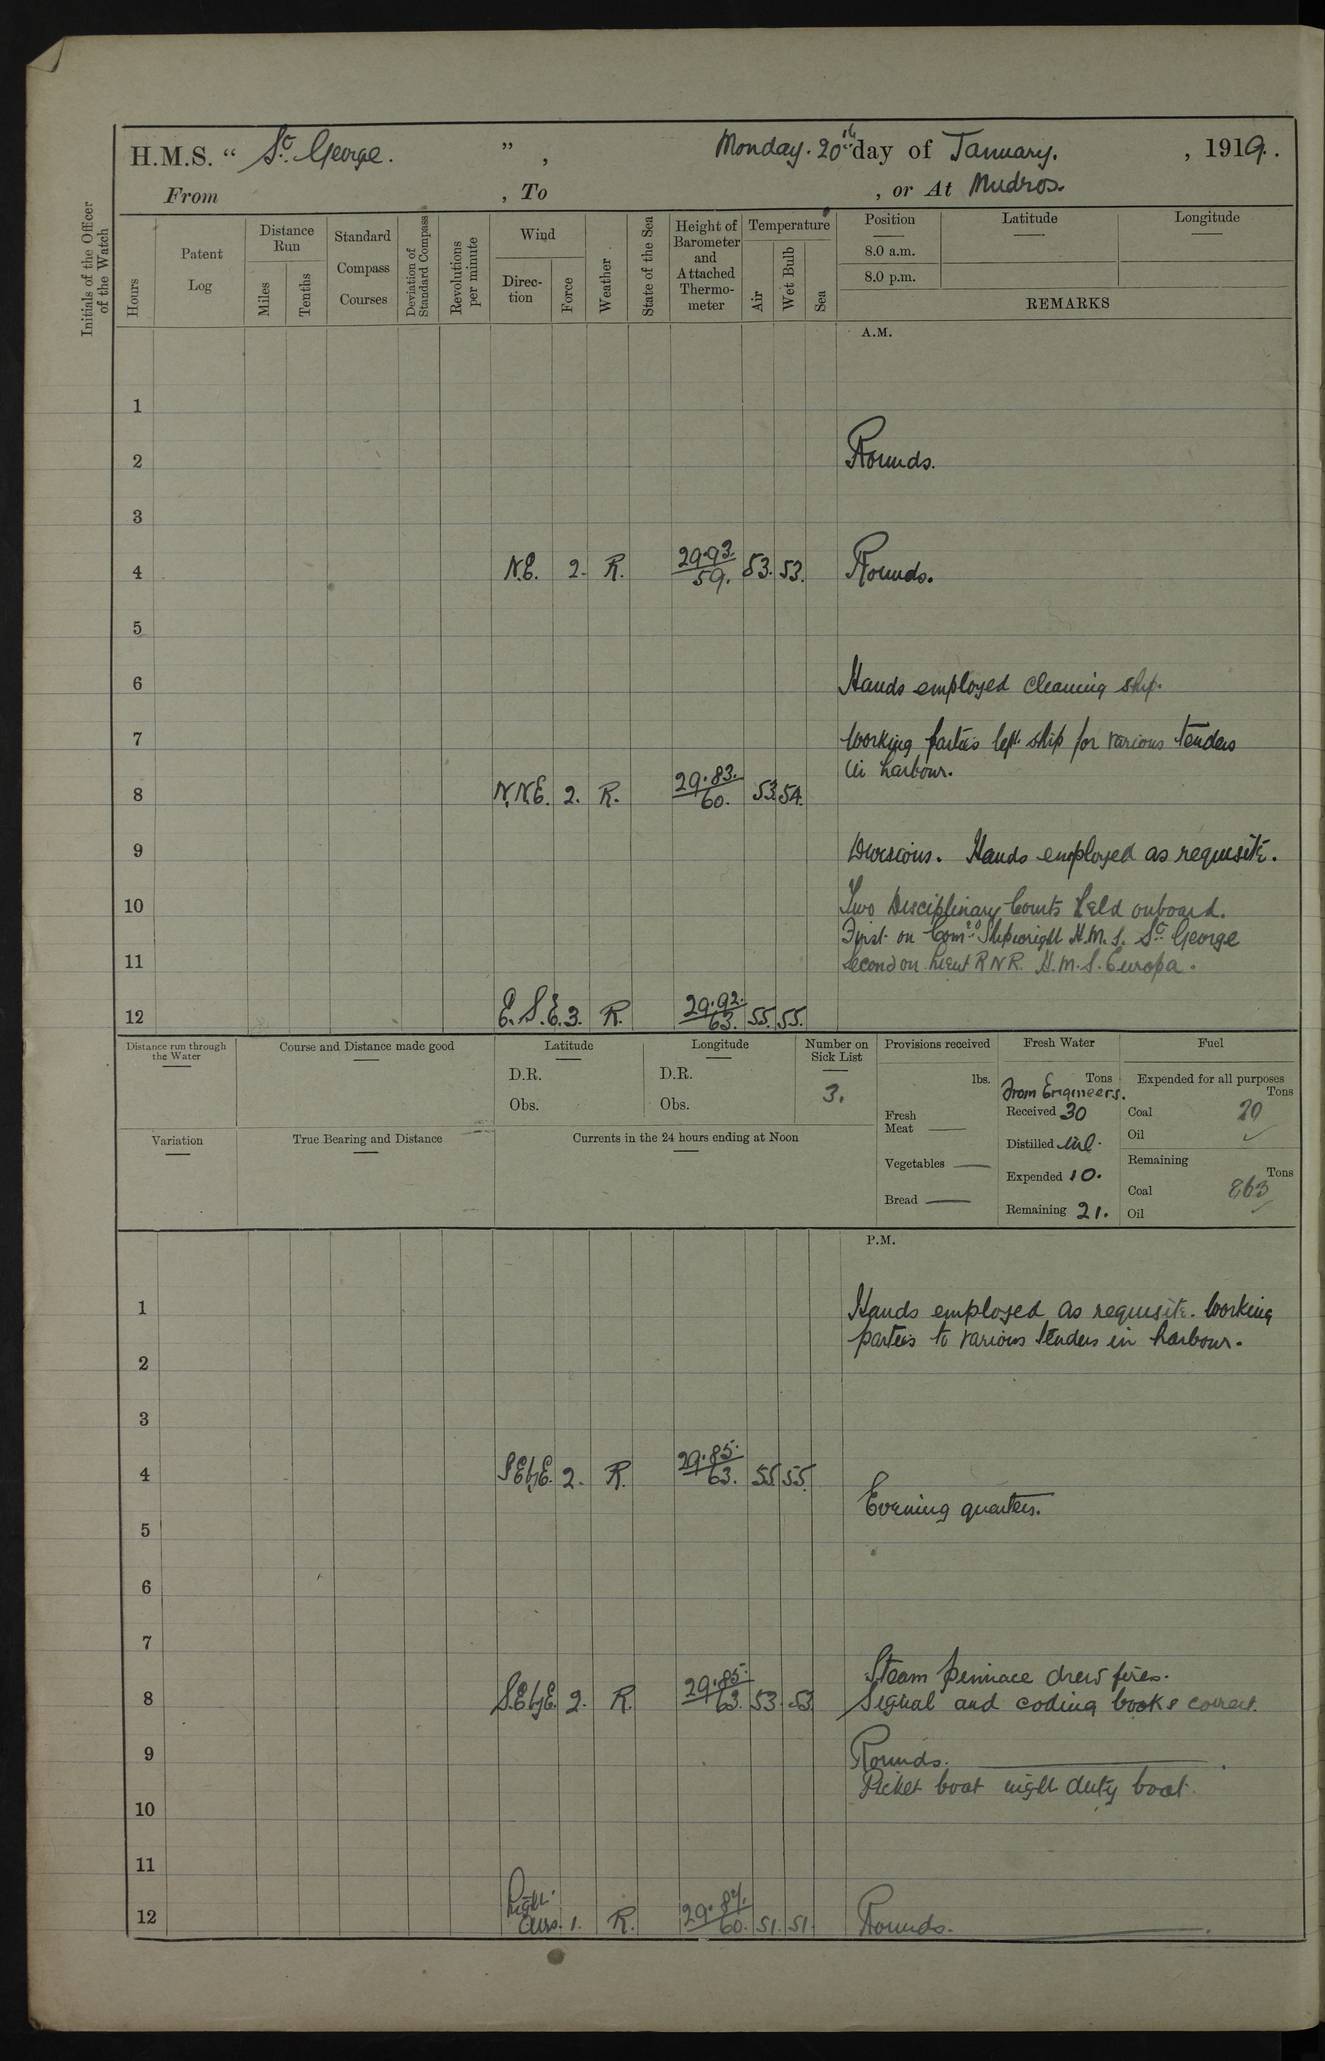 H.M.S. “ St. George. ” , Monday. 20th day of January. , 1919.
From , To , or At Mudros.
Initials of the Officer of the Watch
Hours
Patent Log
Distance Run
Miles
Tenths
Standard Compass Courses
Deviation of Standard Compass
Revolutions per minute
Wind
Direction
Force
Weather
State of the Sea
Height of Barometer and Attached Thermometer
Temperature
Air
Wet Bulb
Sea
Position
8.0 a.m.
8.0 p.m.
Latitude
Longitude
REMARKS
A.M.
1
2 Rounds.
3
4 N.E. 2. R. 29.93. 59. 53. 53. Rounds.
5
6 Hands employed cleaning ship.
7 Working parties left ship for various tenders
in harbour.
8 N.N.E. 2. R. 29.83. 60. 53. 54.
9 Divisions. Hands employed as requisite.
10 Two Disciplinary Courts held onboard.
First on Comd. Shipwright H.M.S. St. George
11 Second on Lieut RNR. H.M.S. Europa.
12 E.S.E. 3. R. 29.92. 63. 55. 55.
Distance run through the Water
Course and Distance made good
Latitude
D.R.
Obs.
Longitude
D.R.
Obs.
Number on Sick List
3.
Provisions received
lbs.
Fresh Meat
Vegetables
Bread
Fresh Water
Tons
From Engineers.
Received 30
Distilled Nil.
Expended 10.
Remaining 21.
Fuel
Expended for all purposes
Tons
Coal 20
Oil
Remaining
Tons
Coal 863
Oil
Variation
True Bearing and Distance
Currents in the 24 hours ending at Noon
P.M.
1 Hands employed as requisite. Working
parties to various tenders in harbour.
2
3
4 S.E.byE. 2. R. 29.85. 63. 55. 55.
Evening quarters.
5
6
7
Steam pinnace drew fires.
8 S.E.byE. 2. R. 29.85. 63. 53. 53. Signal and coding books correct.
9 Rounds.
Picket boat night duty boat.
10
11
12 Light Airs. 1. R. 29.84. 60. 51. 51. Rounds.